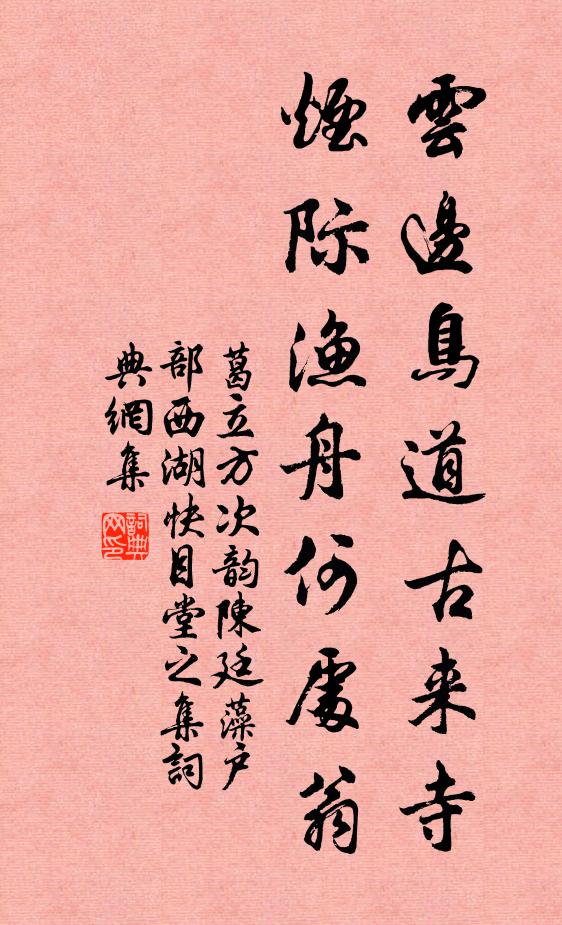 雲邊鳥道古来寺
煙际漁舟何處翁
葛立方次韵陳廷藻户
部西湖快目堂之集詞
典網集
詞典
网印